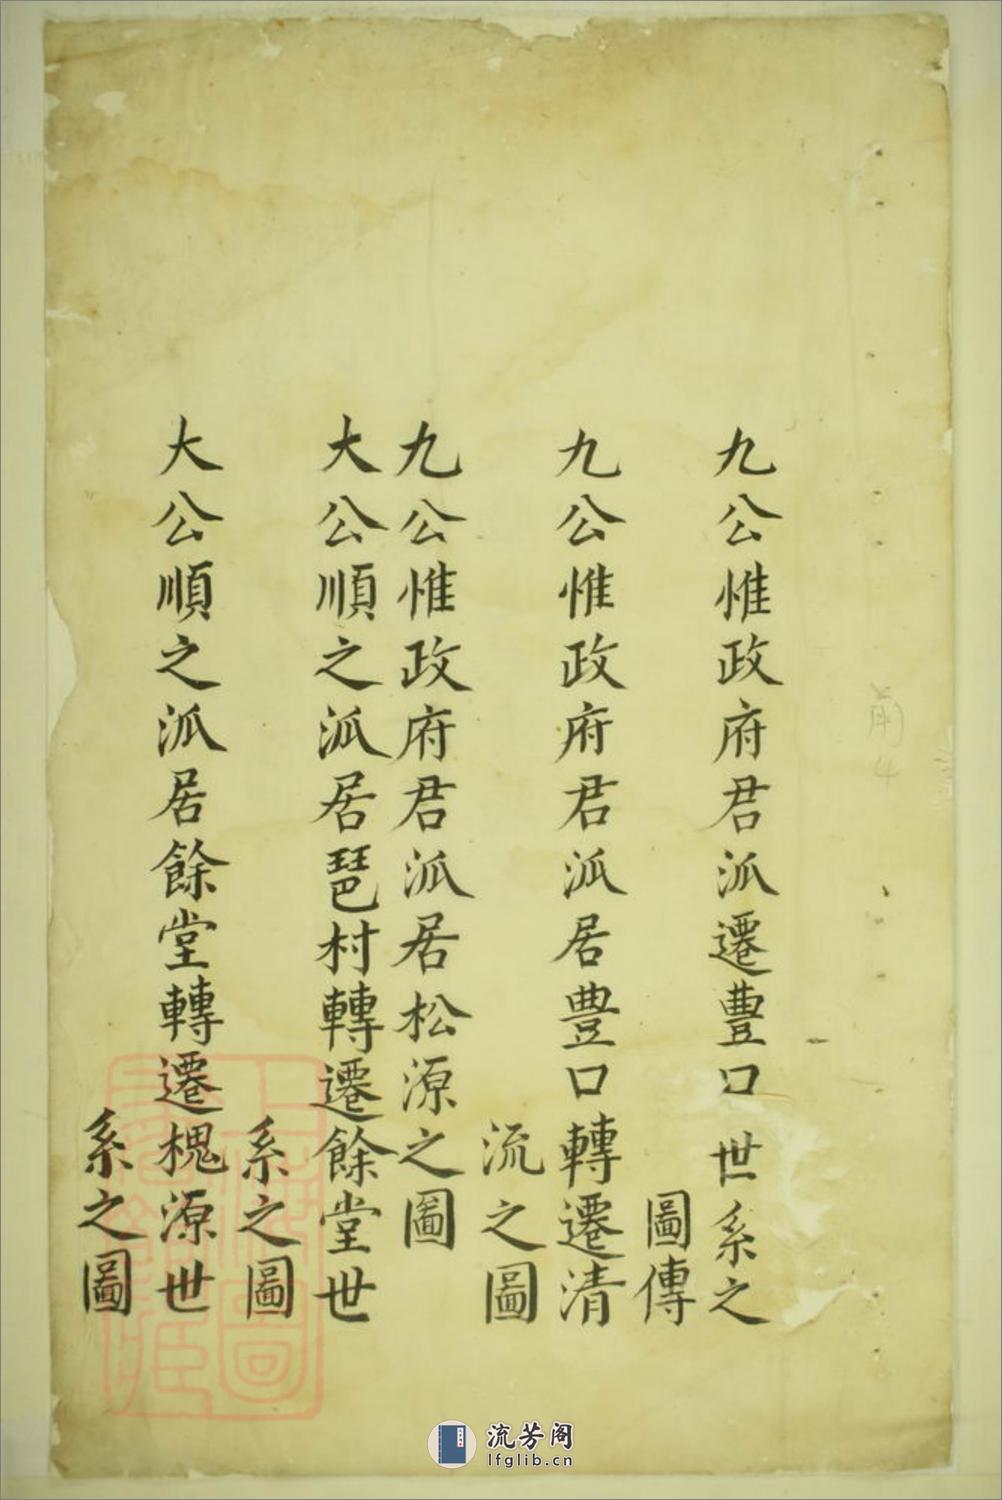 九公惟政府君派遷豊口世系之
圖傳
九公惟政府君派居豊口轉遷清
流之圖
九公惟政府君派居松源之圖
大公順之派居琶村轉遷餘堂世
系之圖
大公順之派居餘堂轉遷槐源世
系之圖
前4
流芳阁
lfglib.cn